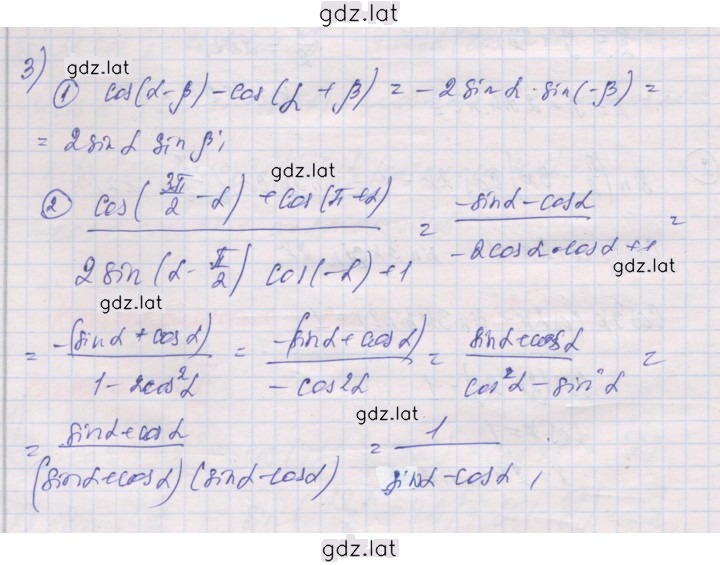 gdz.lat
3) gdz.lat
① cos(α-β) - cos(α + β) = - 2 sin α · sin(-β) =
= 2 sin α sin β;
gdz.lat
② (cos(3π/2 - α) + cos(π + α)) / (2 sin(α - π/2) cos(-α) + 1) = (-sin α - cos α) / (-2cos α · cos α + 1) =
gdz.lat
gdz.lat
= -(sin α + cos α) / (1 - 2cos²α) = -(sin α + cos α) / (-cos 2α) = (sin α + cos α) / (cos²α - sin²α) =
gdz.lat
= (sin α + cos α) / ((sin α + cos α)(sin α - cos α)) = 1 / (sin α - cos α);
gdz.lat